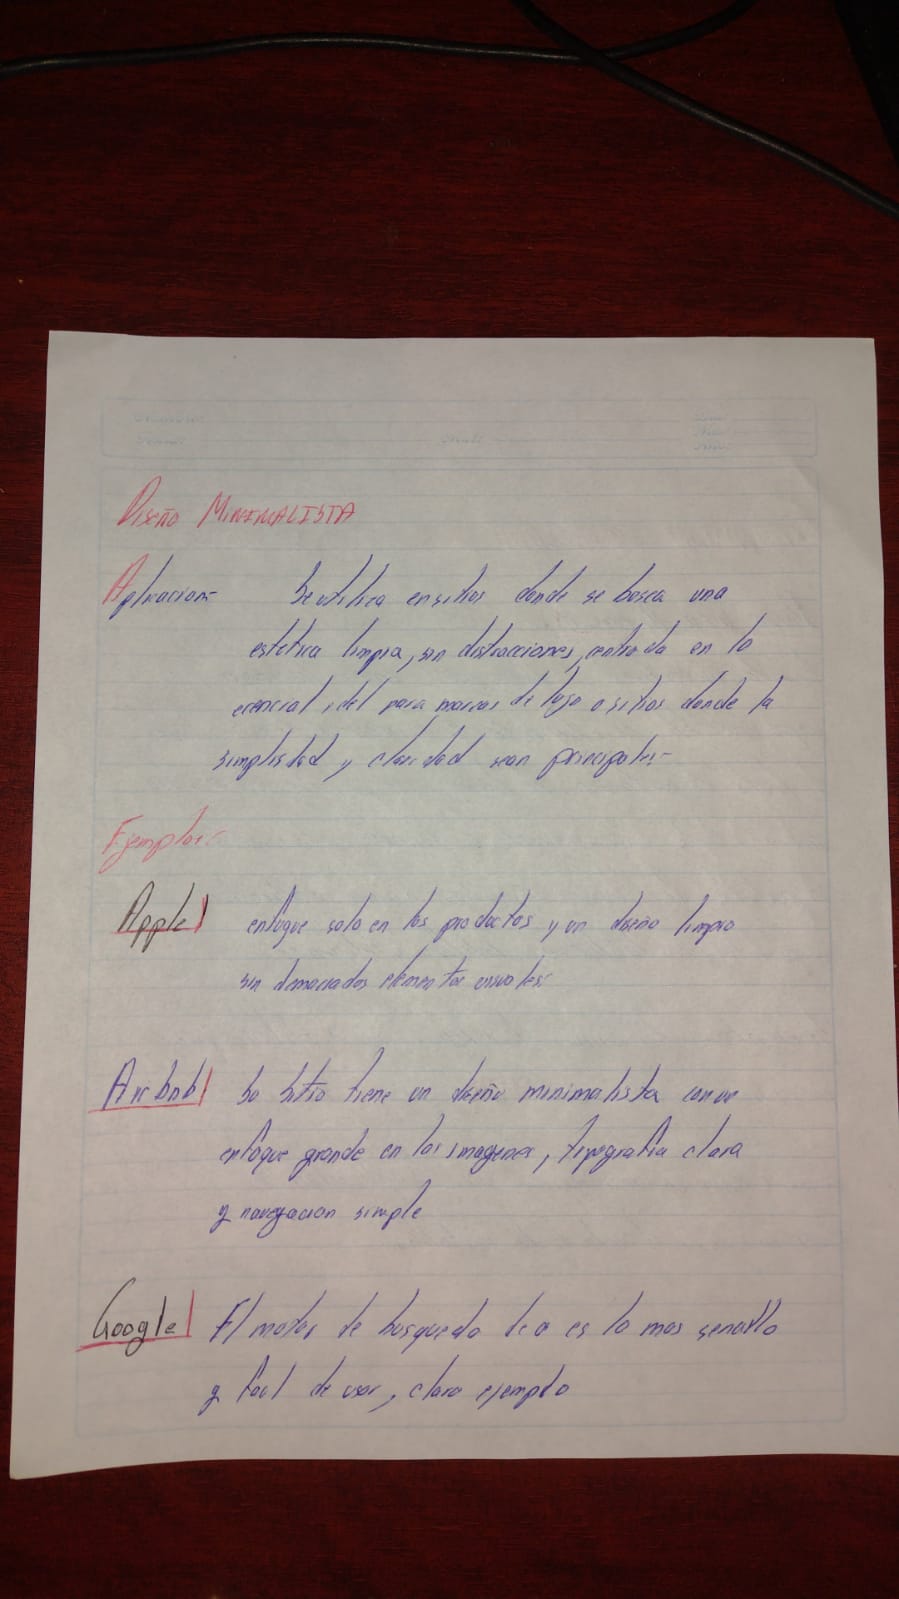 Diseño MINIMALISTA
Aplicacion- Se utiliza en sitios donde se busca una
estetica limpia, sin distracciones, centrada en lo
ecencial, idel para marcas de lujo o sitios donde la
simplisdad y claridad sean principales-
Ejemplos:-
Apple enfoque solo en los productos y un diseño limpio
sin demaciados elementos visuales:
Airbnb Su Sitio tiene un diseño minimalista con un
enfoque grande en las imagenes, tipografia clara
y navegacion simple
Google El motor de busqueda es lo mas sencillo
y facil de usar, claro ejemplo